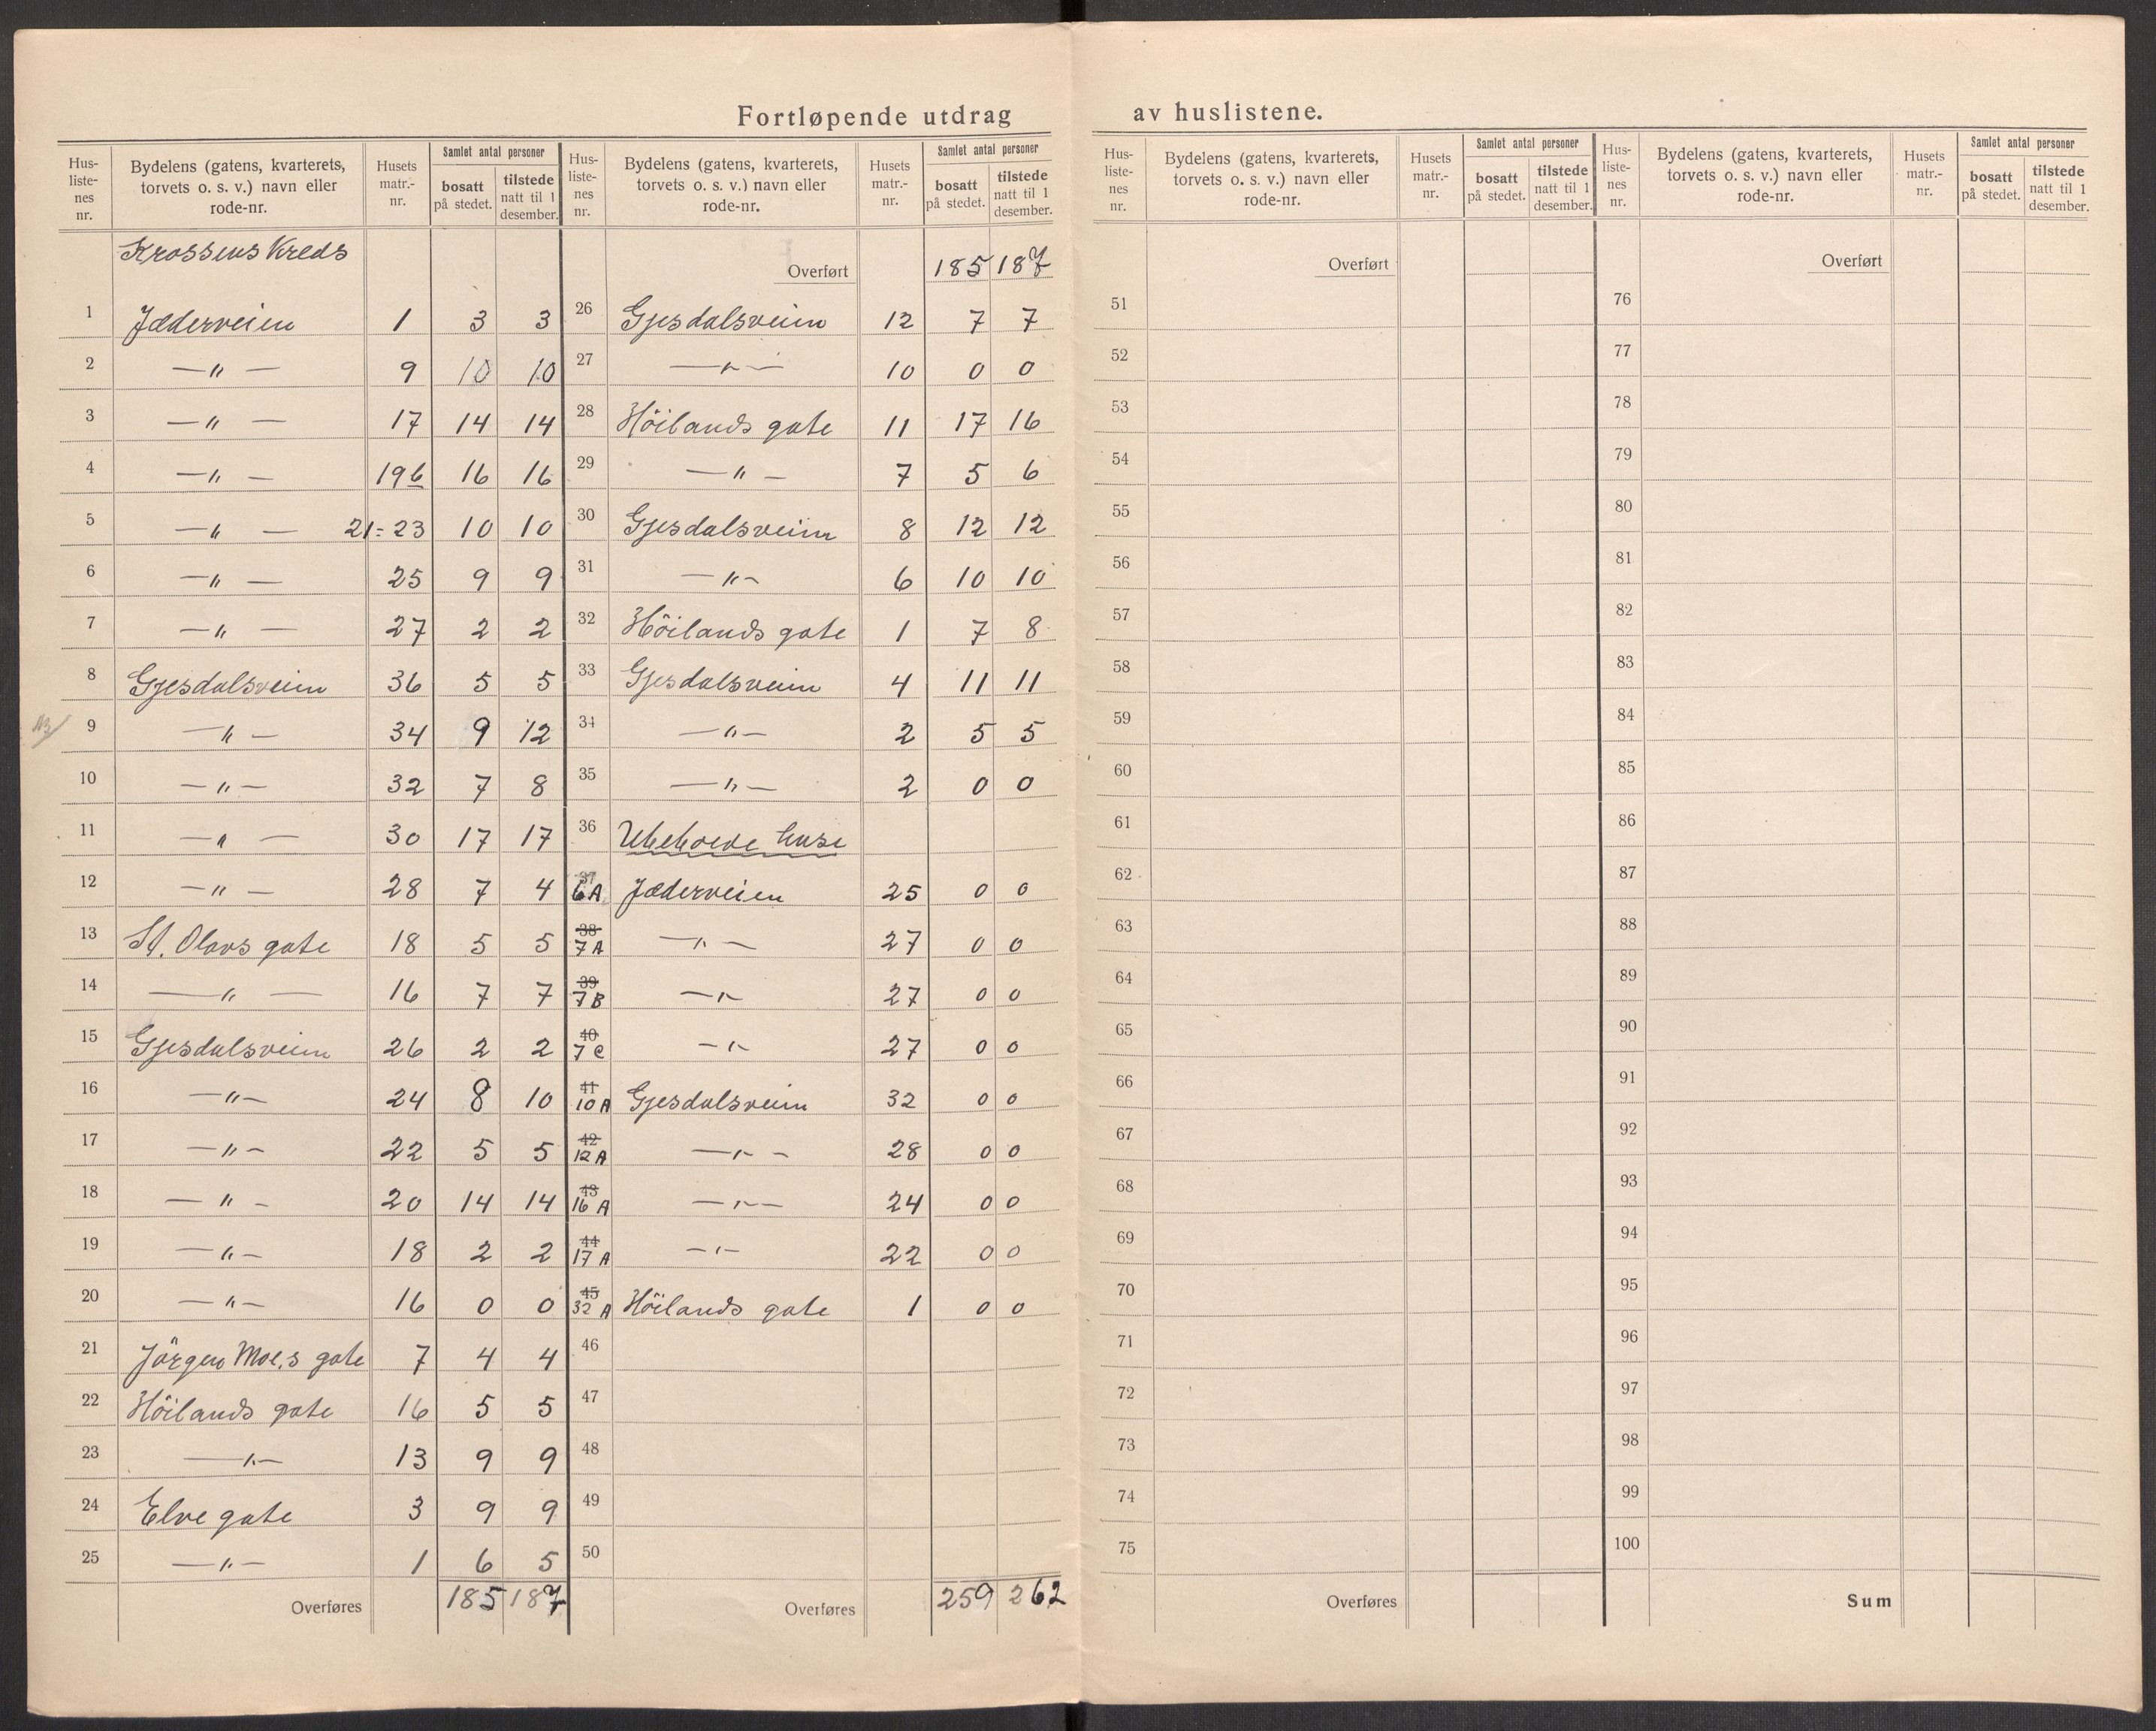 Fortløpende utdrag av huslistene.
Hus-liste-nes nr. Bydelens (gatens, kvarterets, torvets o. s. v.) navn eller rode-nr. Husets matr.-nr. Samlet antal personer bosatt på stedet. tilstede natt til 1 desember.
Krossens Kreds
1 Jæderveien 1 3 3
2 — " — 9 10 10
3 — " — 17 14 14
4 — " — 19b 16 16
5 — " — 21-23 10 10
6 — " — 25 9 9
7 — " — 27 2 2
8 Gjesdalsveien 36 5 5
9 — " — 34 9 12
10 — " — 32 7 8
11 — " — 30 17 17
12 — " — 28 7 4
13 St. Olavs gate 18 5 5
14 — " — 16 7 7
15 Gjesdalsveien 26 2 2
16 — " — 24 8 10
17 — " — 22 5 5
18 — " — 20 14 14
19 — " — 18 2 2
20 — " — 16 0 0
21 Jörgen Moe,s gate 7 4 4
22 Höilands gate 16 5 5
23 — " — 13 9 9
24 Elve gate 3 9 9
25 — " — 1 6 5
Overføres 185 187
Hus-liste-nes nr. Bydelens (gatens, kvarterets, torvets o. s. v.) navn eller rode-nr. Husets matr.-nr. Samlet antal personer bosatt på stedet. tilstede natt til 1 desember.
Overført 185 187
26 Gjesdalsveien 12 7 7
27 — " — 10 0 0
28 Höilands gate 11 17 16
29 — " — 7 5 6
30 Gjesdalsveien 8 12 12
31 — " — 6 10 10
32 Höilands gate 1 7 8
33 Gjesdalsveien 4 11 11
34 — " — 2 5 5
35 — " — 2 0 0
36 Ubeboede huse
37 6A Jæderveien 25 0 0
38 7A — " — 27 0 0
39 7B — " — 27 0 0
40 7C — " — 27 0 0
41 10A Gjesdalsveien 32 0 0
42 12A — " — 28 0 0
43 16A — " — 24 0 0
44 17A — " — 22 0 0
45 32A Höilands gate 1 0 0
46
47
48
49
50
Overføres 259 262
Hus-liste-nes nr. Bydelens (gatens, kvarterets, torvets o. s. v.) navn eller rode-nr. Husets matr.-nr. Samlet antal personer bosatt på stedet. tilstede natt til 1 desember.
Overført
51
52
53
54
55
56
57
58
59
60
61
62
63
64
65
66
67
68
69
70
71
72
73
74
75
Overføres
Hus-liste-nes nr. Bydelens (gatens, kvarterets, torvets o. s. v.) navn eller rode-nr. Husets matr.-nr. Samlet antal personer bosatt på stedet. tilstede natt til 1 desember.
Overført
76
77
78
79
80
81
82
83
84
85
86
87
88
89
90
91
92
93
94
95
96
97
98
99
100
Sum